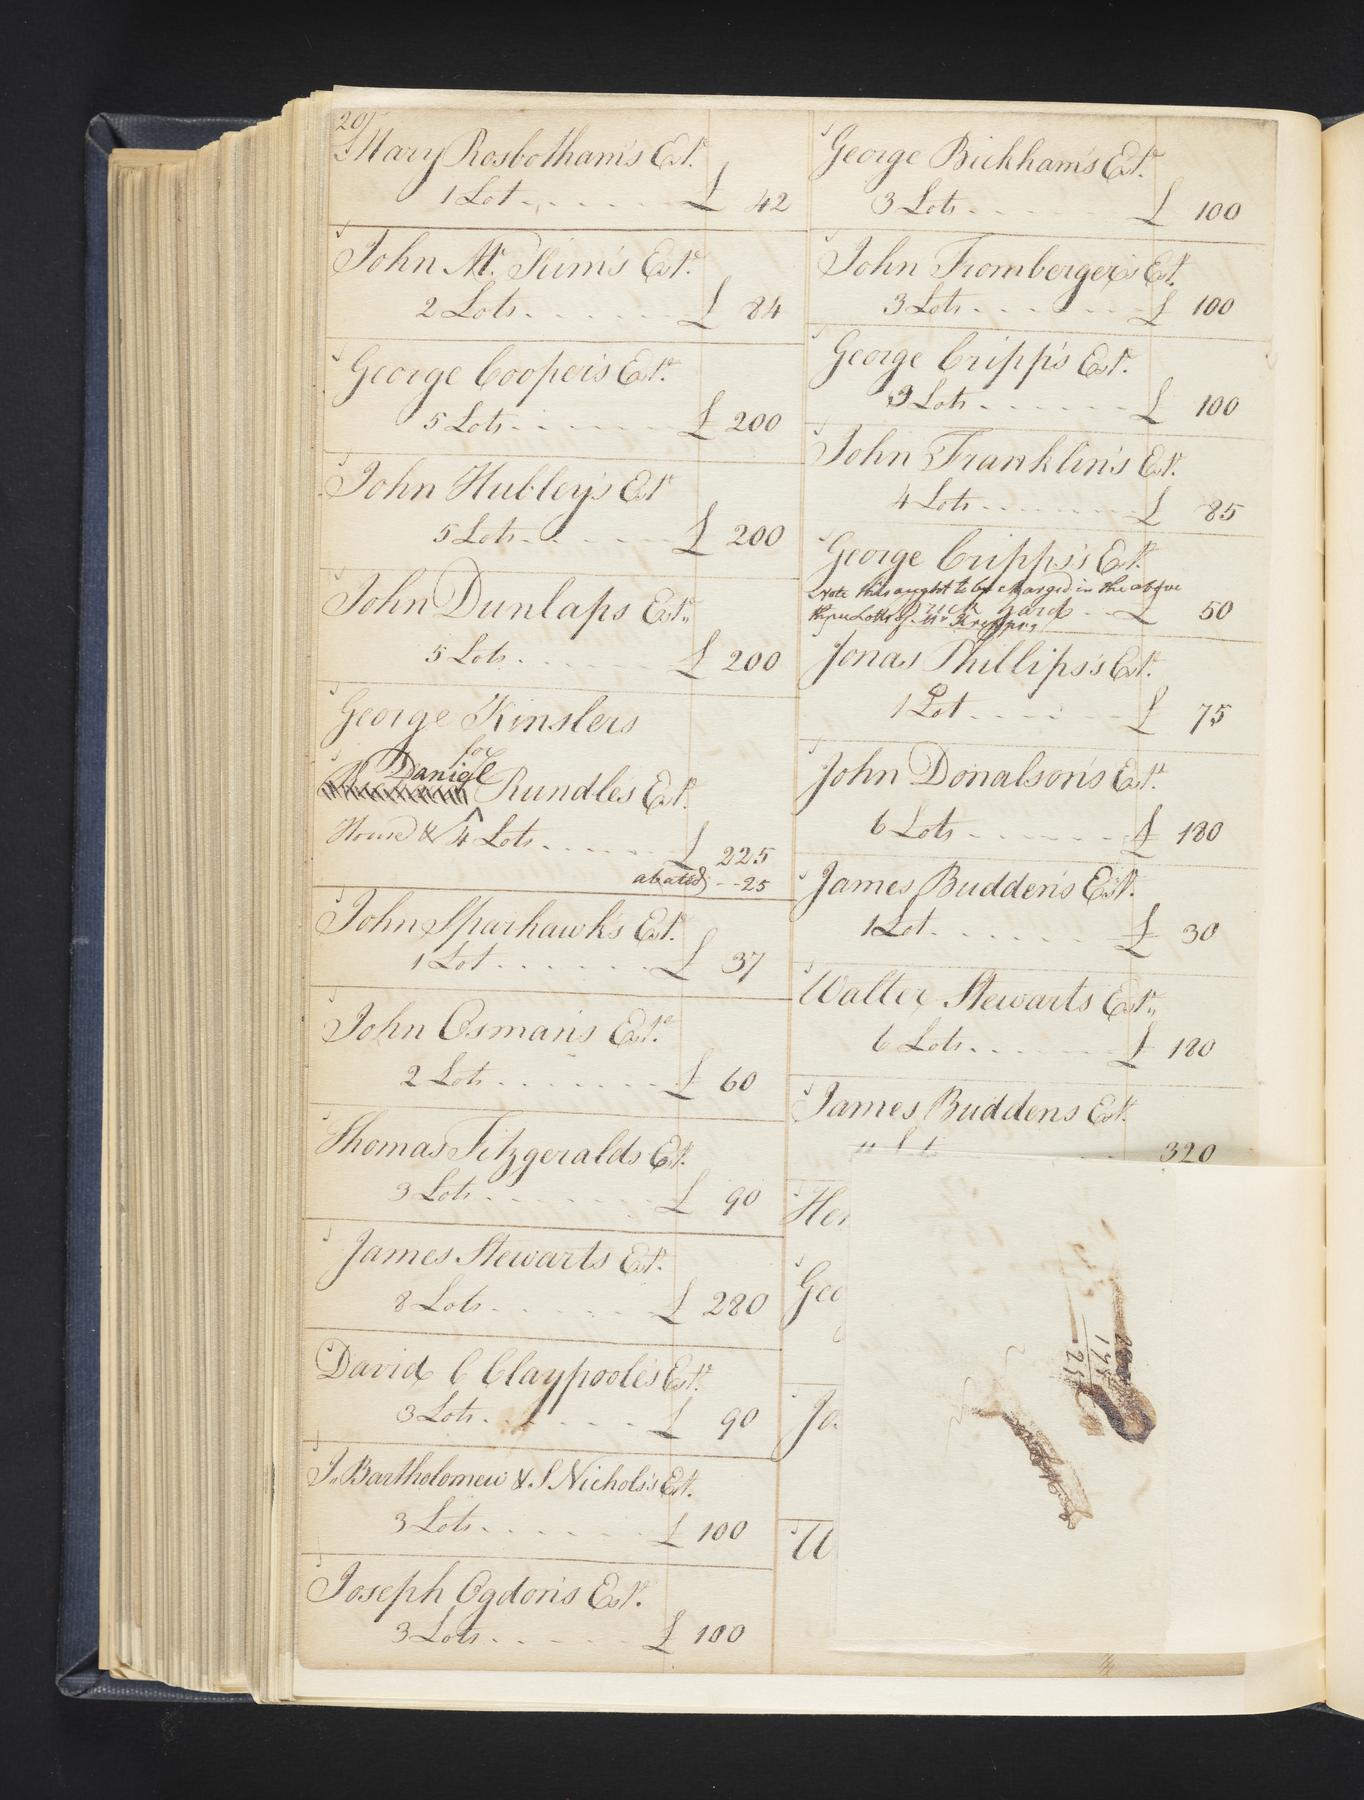 20)
Mary Rosbotham's Est.
1 Lot - - - - - - £ 42
John Mc. Kim's Est.
2 Lots - - - - - - £ 84
George Cooper's Est.
5 Lots - - - - - - £ 200
John Hubley's Est
5 Lots - - - - - - £ 200
John Dunlaps Est.
5 Lots - - - - - - £ 200
George Kinslers
for
Daniel
Rundle's Est.
House & 4 Lots - - - - - - £ 225
abated - - 25
John Sparhawk's Est.
1 Lot - - - - - - £ 37
John Osman's Est.
2 Lots - - - - - - £ 60
Thomas Fitzgeralds Est.
3 Lots - - - - - - £ 90
James Stewarts Est.
8 Lots - - - - - - £ 280
David C Claypoole's Est.
3 Lots - - - - - - £ 90
J. Bartholomew & S Nichols's Est.
3 Lots - - - - - - £ 100
Joseph Ogdon's Est.
3 Lots - - - - - - £ 100
George Bickham's Est.
3 Lots - - - - - - £ 100
John Fromberger's Est.
3 Lots - - - - - - £ 100
George Cripp's Est.
3 Lots - - - - - - £ 100
John Franklin's Est.
4 Lots - - - - - - £ 85
George Cripps's Est.
Note this ought to be charged in the above
Brick Yard - - £ 50
three Lotts of Mr Kripps
Jonas Phillips's Est.
1 Lot - - - - - - £ 75
John Donalson's Est.
6 Lots - - - - - - £ 180
James Budden's Est.
1 Lot - - - - - - £ 30
Walter Stewarts Est.
6 Lots - - - - - - £ 180
James Buddens Est.
320
Her
Geo
Jo
W